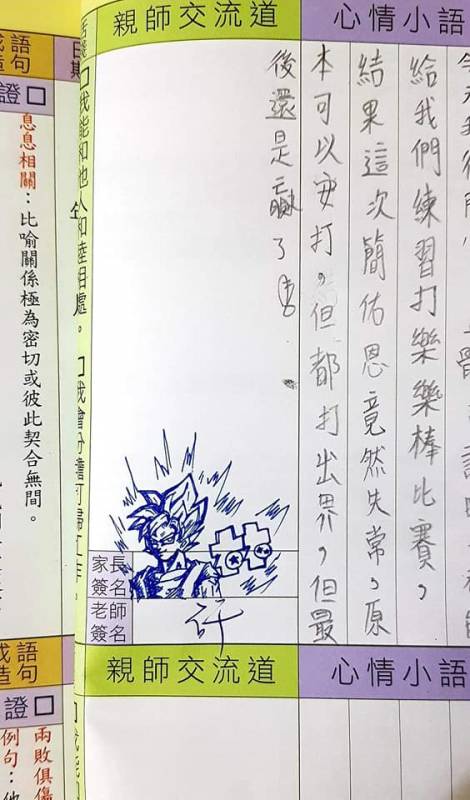 親師交流道
心情小語
給我們練習打樂樂棒比賽，
結果這次簡佑恩竟然失常，原
本可以安打，但都打出界，但最
後還是贏了
家長
簽名
老師
簽名
許
親師交流道
心情小語
語
句
日
期
證
息息相關：比喻關係極為密切或彼此契合無間。
我能和他人和睦相處。
語
造句
證
兩敗俱傷
例句：他